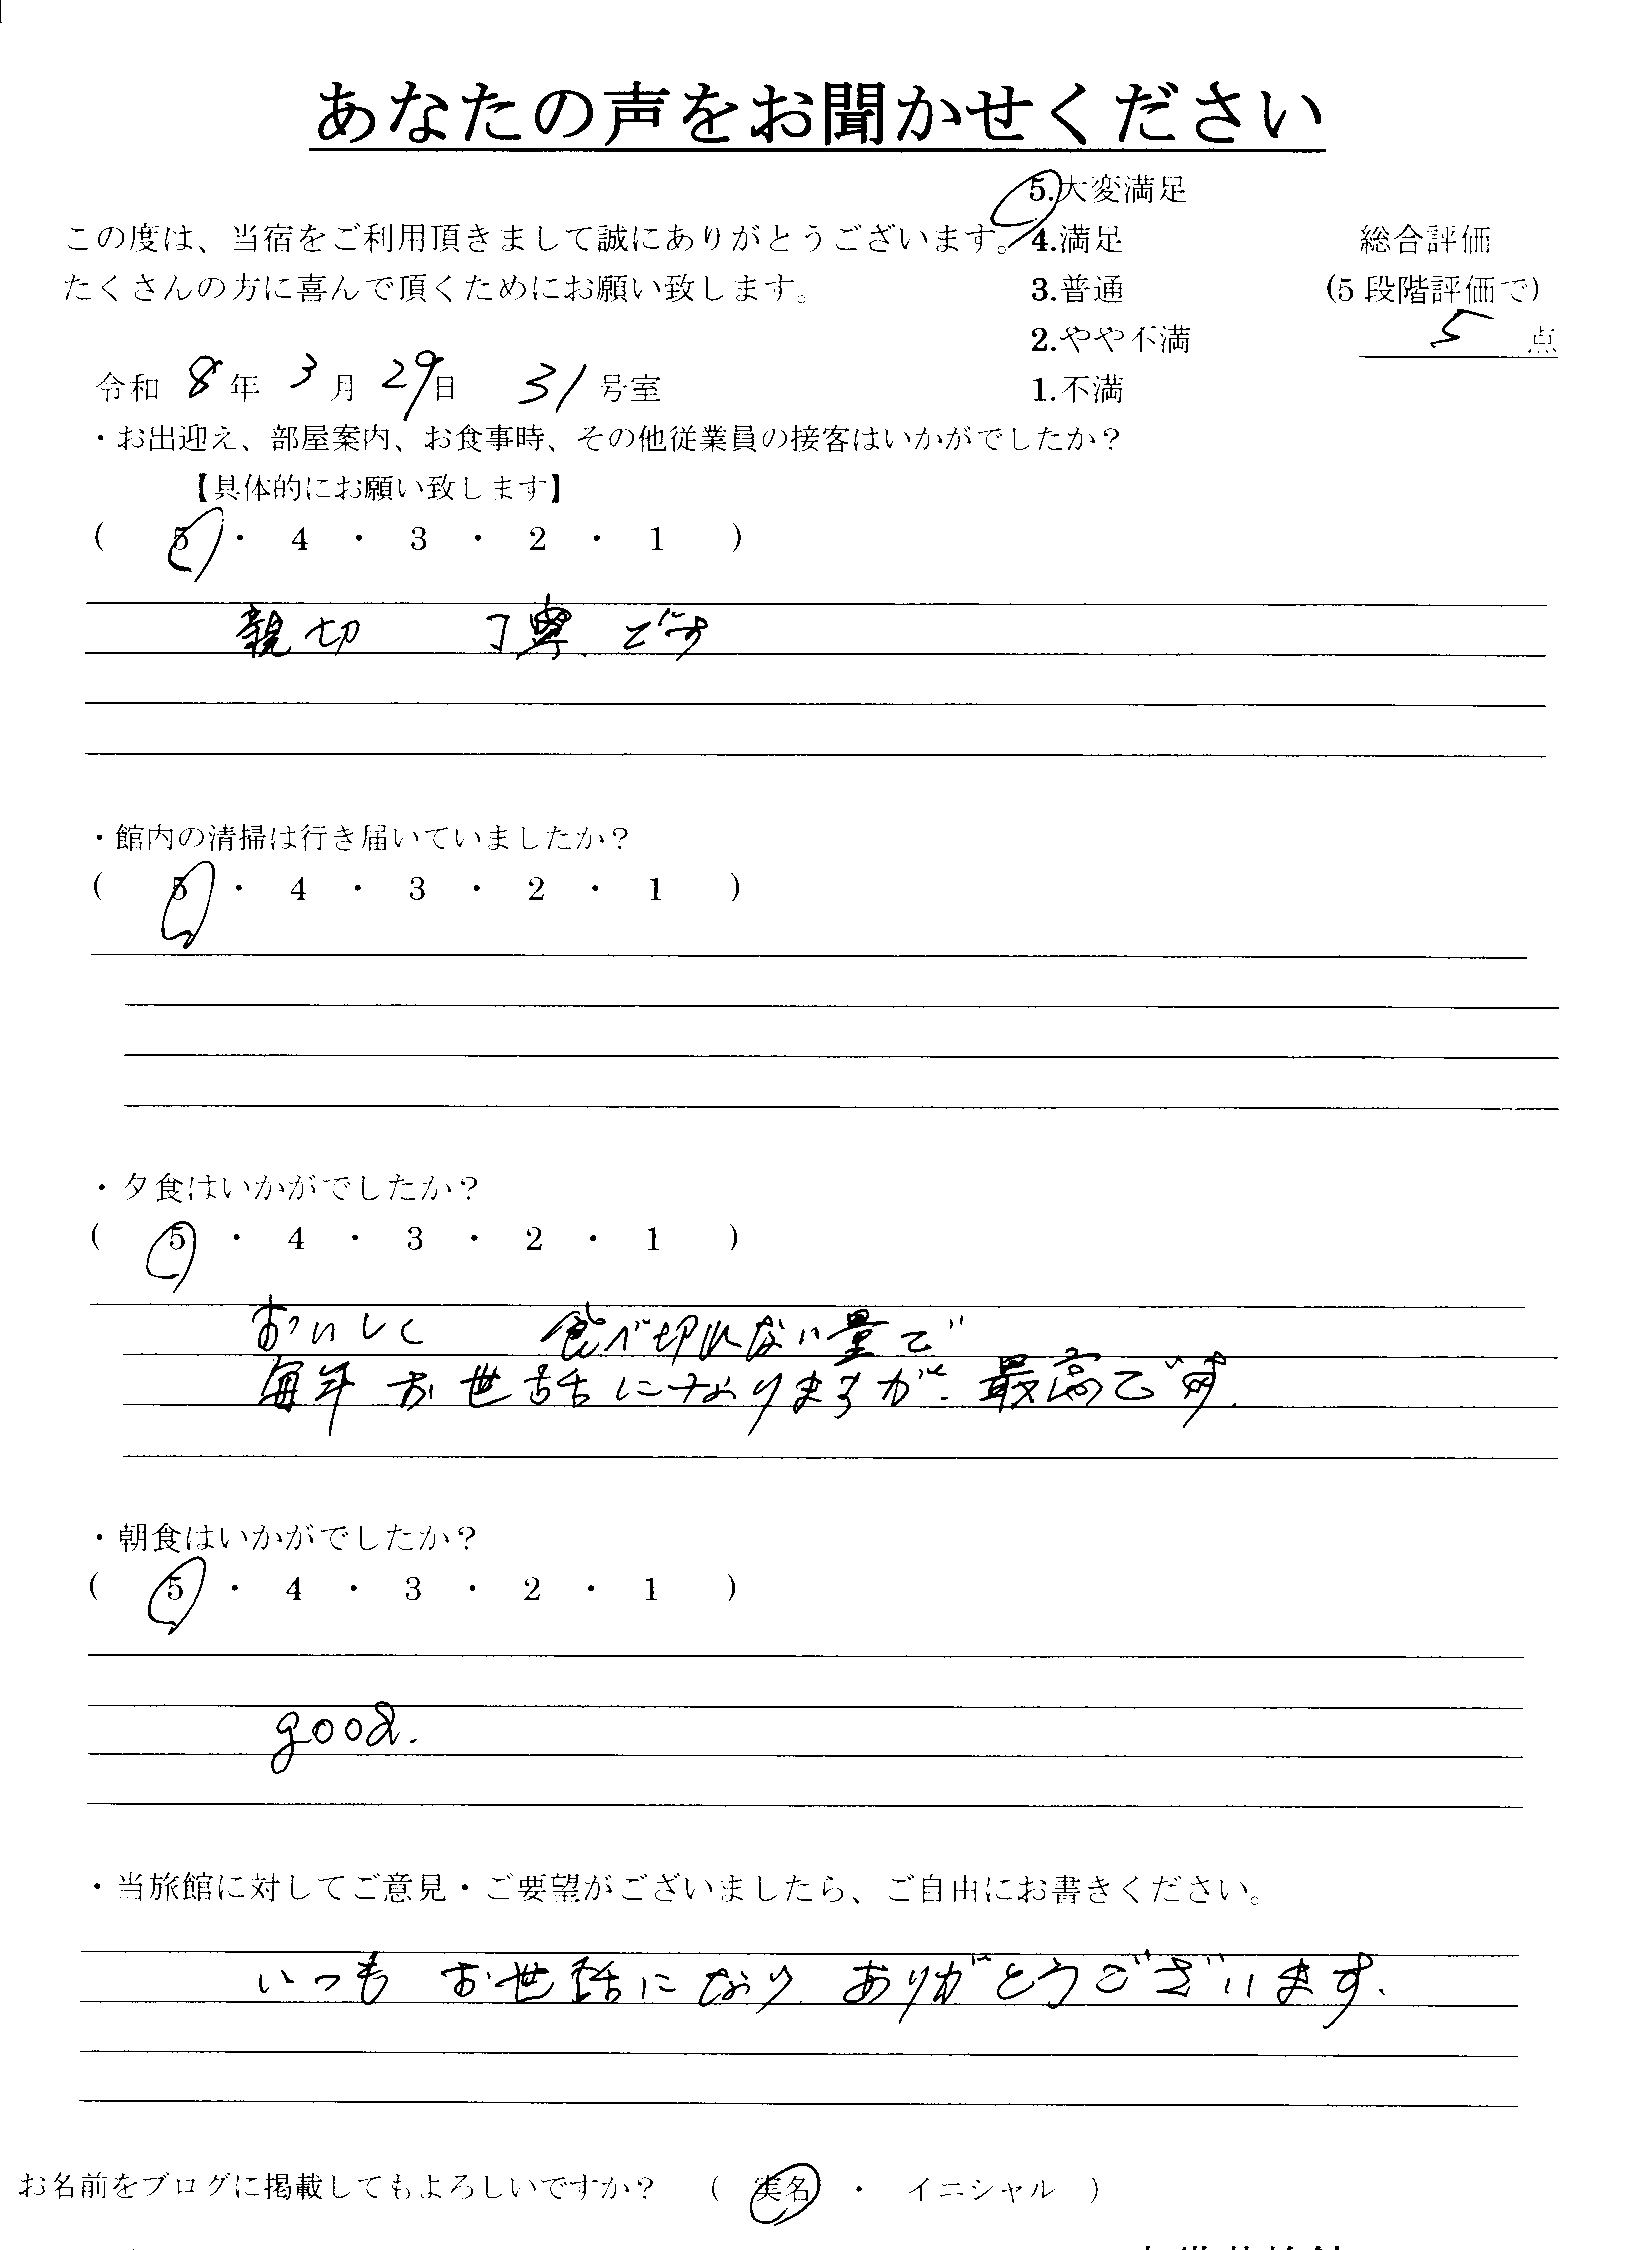 あなたの声をお聞かせください
5.大変満足
この度は、当宿をご利用頂きまして誠にありがとうございます。 4.満足 総合評価
たくさんの方に喜んで頂くためにお願い致します。 3.普通 (5段階評価で)
2.やや不満 5 点
令和 8 年 3 月 29日 31 号室 1.不満
・お出迎え、部屋案内、お食事時、その他従業員の接客はいかがでしたか?
【具体的にお願い致します】
( 5 ・ 4 ・ 3 ・ 2 ・ 1 )
親切 丁寧です
・館内の清掃は行き届いていましたか?
( 5 ・ 4 ・ 3 ・ 2 ・ 1 )
・夕食はいかがでしたか?
( 5 ・ 4 ・ 3 ・ 2 ・ 1 )
おいしく 食べ切れない量で
毎年お世話になりますが、最高です.
・朝食はいかがでしたか?
( 5 ・ 4 ・ 3 ・ 2 ・ 1 )
good.
・当旅館に対してご意見・ご要望がございましたら、ご自由にお書きください。
いつも お世話になり ありがとうございます.
お名前をブログに掲載してもよろしいですか? ( 実名 ・ イニシャル )